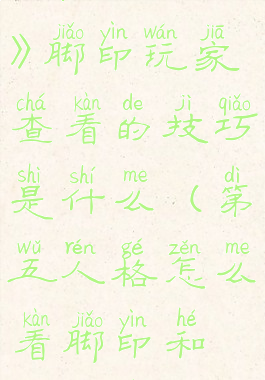 jiǎo yìn wán jiā
》脚印玩家
chá kàn de jì qiǎo
查看的技巧
shì shí me dì
是什么（第
wǔ rén gé zěn me
五人格怎么
kàn jiǎo yìn hé
看脚印和